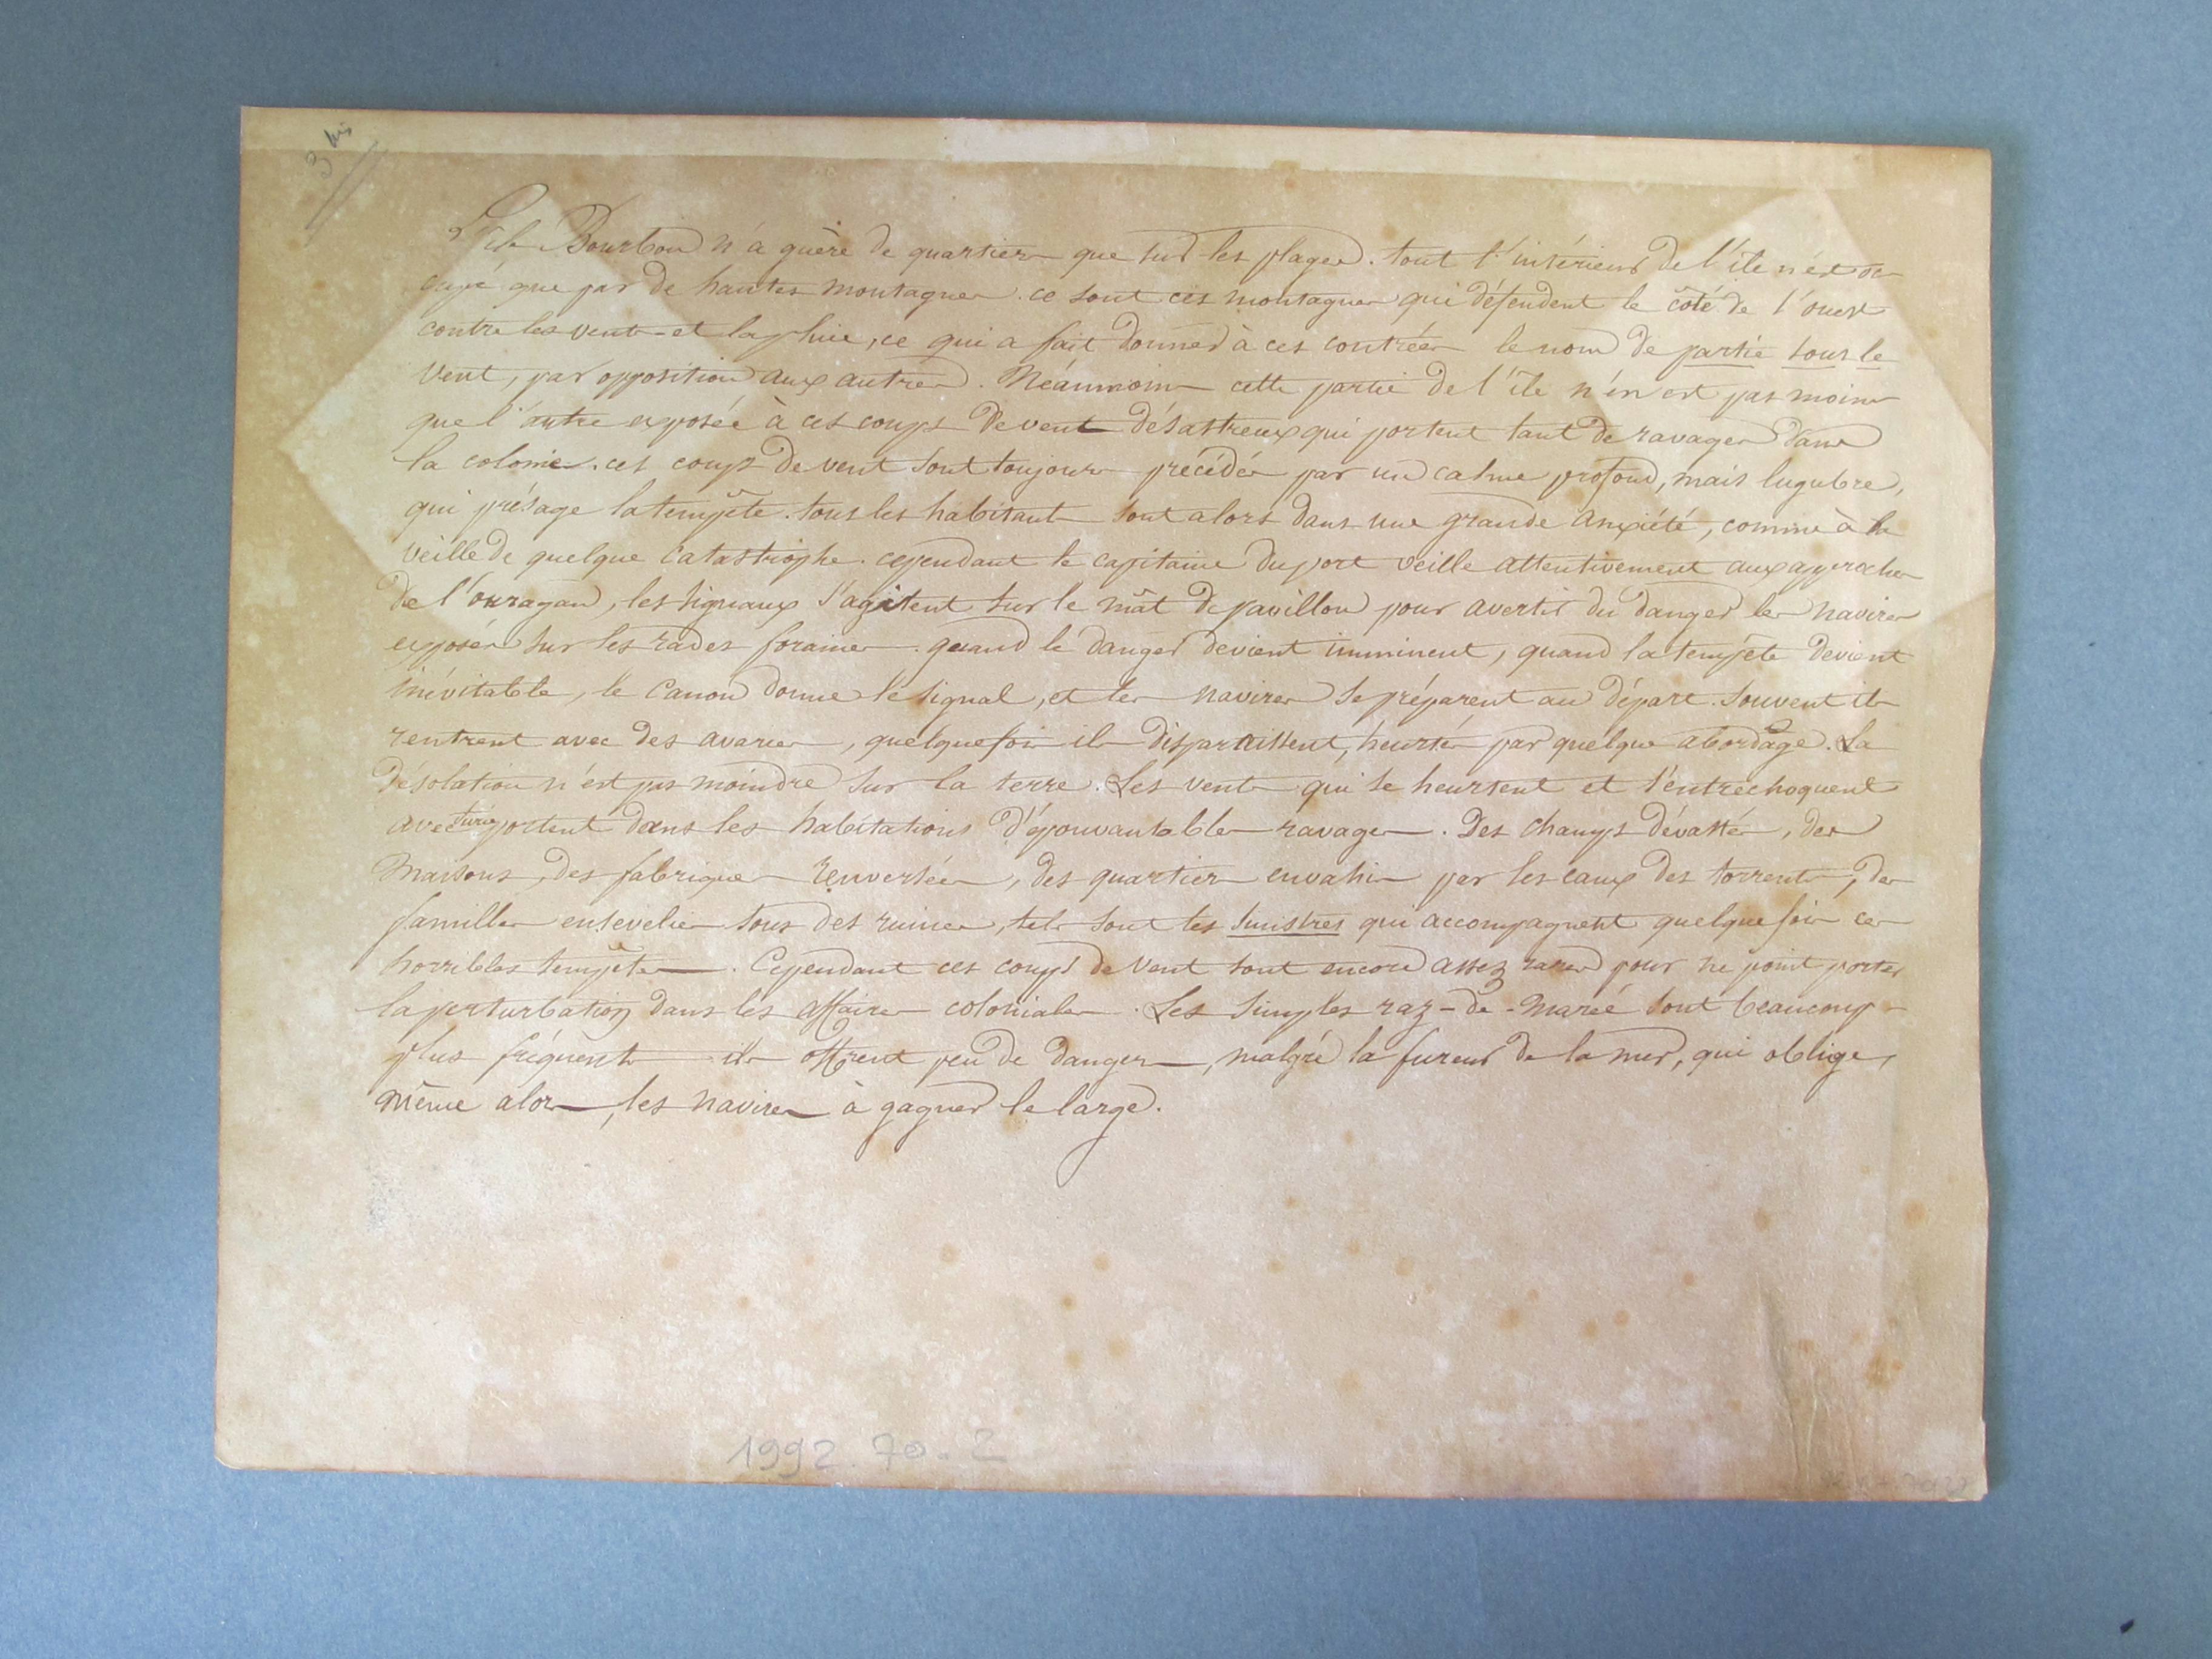 3 bis
L'île Bourbon n'a guère de quartiers que sur les plages. tout l'intérieur de l'île n'est oc-
cupé que par de hautes montagnes. ce sont ces montagnes qui défendent le côté de l'ouest
contre les vents et la pluie, ce qui a fait donner à ces contrées le nom de partie sous le
vent, par opposition aux autres. Néanmoins cette partie de l'île n'en est pas moins
que l'autre exposée à ces coups de vent désastreux qui portent tant de ravages dans
la colonie. ces coups de vent sont toujours précédés par un calme profond, mais lugubre,
qui présage la tempête. tous les habitants sont alors dans une grande anxiété, comme à la
veille de quelque catastrophe. cependant le capitaine du port veille attentivement aux approches
de l'ouragan, les signaux s'agitent sur le mât de pavillon pour avertir du danger les navires
exposés sur les rades foraines. quand le danger devient imminent, quand la tempête devient
inévitable, le canon donne le signal, et les navires se préparent au départ. souvent ils
rentrent avec des avaries, quelquefois ils disparaissent, heurtés par quelque abordage. La
désolation n'est pas moindre sur la terre. Les vents qui se heurtent et s'entrechoquent
avec furie portent dans les habitations d'épouvantables ravages. Des champs dévastés, des
maisons, des fabriques renversées, des quartiers envahis par les eaux des torrents, des
familles ensevelies sous des ruines, tels sont les sinistres qui accompagnent quelquefois ces
horribles tempêtes. Cependant ces coups de vent sont encore assez rares pour ne point porter
la perturbation dans les affaires coloniales. Les simples raz-de-marée sont beaucoup
plus fréquents ils offrent peu de dangers, malgré la fureur de la mer, qui oblige,
même alors, les navires à gagner le large.
1992.70.2